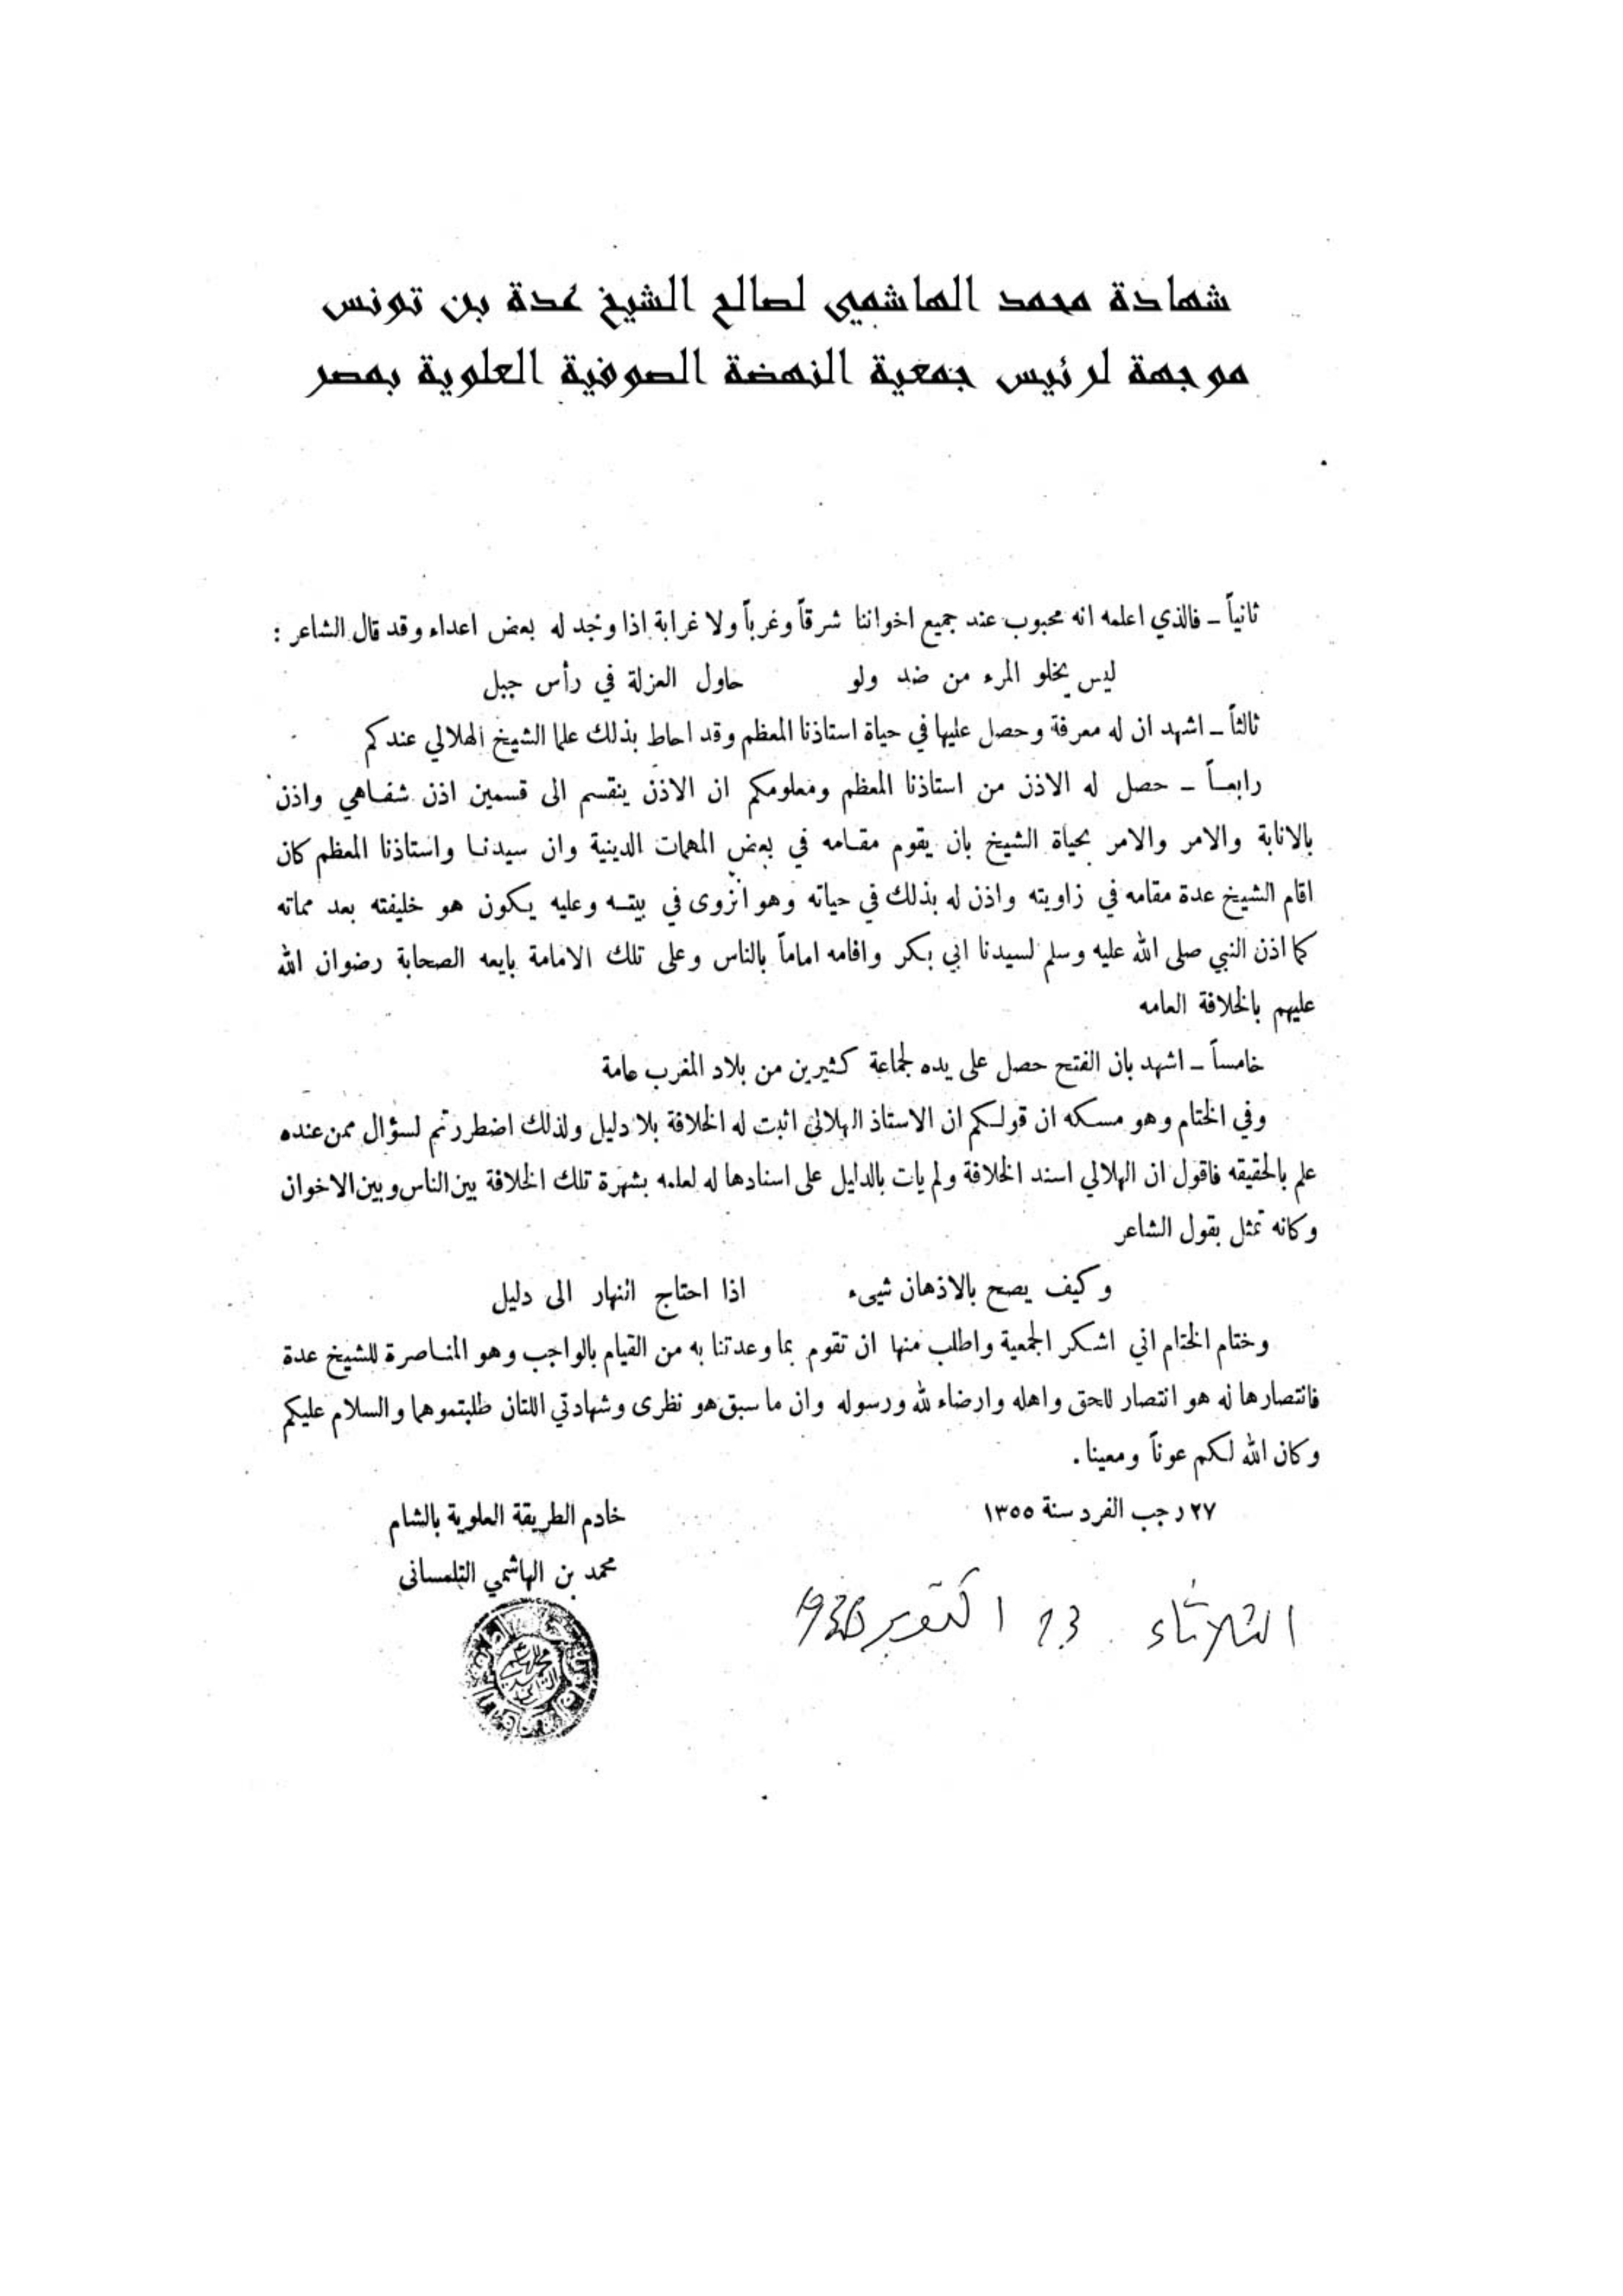 شهادة محمد الهاشمي لصالح الشيخ عدة بن تونس
موجهة لرئيس جمعية النهضة الصوفية العلوية بمصر
ثانياً ـ فالذي اعلمه انه محبوب عند جميع اخواننا شرقاً وغرباً ولا غرابة اذا وجد له بعض اعداء وقد قال الشاعر :
ليس يخلو المرء من ضد ولو حاول العزلة في رأس جبل
ثالثاً ـ اشهد ان له معرفة وحصل عليها في حياة استاذنا المعظم وقد احاط بذلك علما الشيخ الهلالي عندكم
رابعـاً ـ حصل له الاذن من استاذنا المعظم ومعلومكم ان الاذن ينقسم الى قسمين اذن شفـاهي واذن
بالانابة والامر والامر بحياة الشيخ بان يقوم مقـامه في بعض المهمات الدينية وان سيدنـا واستاذنا المعظم كان
اقام الشيخ عدة مقامه في زاويته واذن له بذلك في حياته وهو انزوى في بيتـه وعليه يكون هو خليفته بعد مماته
كما اذن النبي صلى الله عليه وسلم لسيدنا ابي بكر واقامه اماماً بالناس وعلى تلك الامامة بايعه الصحابة رضوان الله
عليهم بالخلافة العامه
خامساً ـ اشهد بان الفتح حصل على يده لجماعة كثيرين من بلاد المغرب عامة
وفي الختام وهو مسكه ان قولكم ان الاستاذ الهلالي اثبت له الخلافة بلا دليل ولذلك اضطررتم لسؤال ممن عنده
علم بالحقيقه فاقول ان الهلالي اسند الخلافة ولم يات بالدليل على اسنادها له لعلمه بشهرة تلك الخلافة بين الناس وبين الاخوان
وكانه تمثل بقول الشاعر
وكيف يصح بالاذهان شيىء اذا احتاج النهار الى دليل
وختام الختام اني اشكر الجمعية واطلب منها ان تقوم بما وعدتنا به من القيام بالواجب وهو المنـاصرة للشيخ عدة
فانتصارها له هو انتصار للحق واهله وارضاء لله ورسوله وان ما سبق هو نظرى وشهادتي اللتان طلبتموهما والسلام عليكم
وكان الله لكم عوناً ومعينا .
٢٧ رجب الفرد سنة ١٣٥٥
خادم الطريقة العلوية بالشام
محمد بن الهاشمي التلمسانى
الثلاثاء 13 اكتوبر 1936